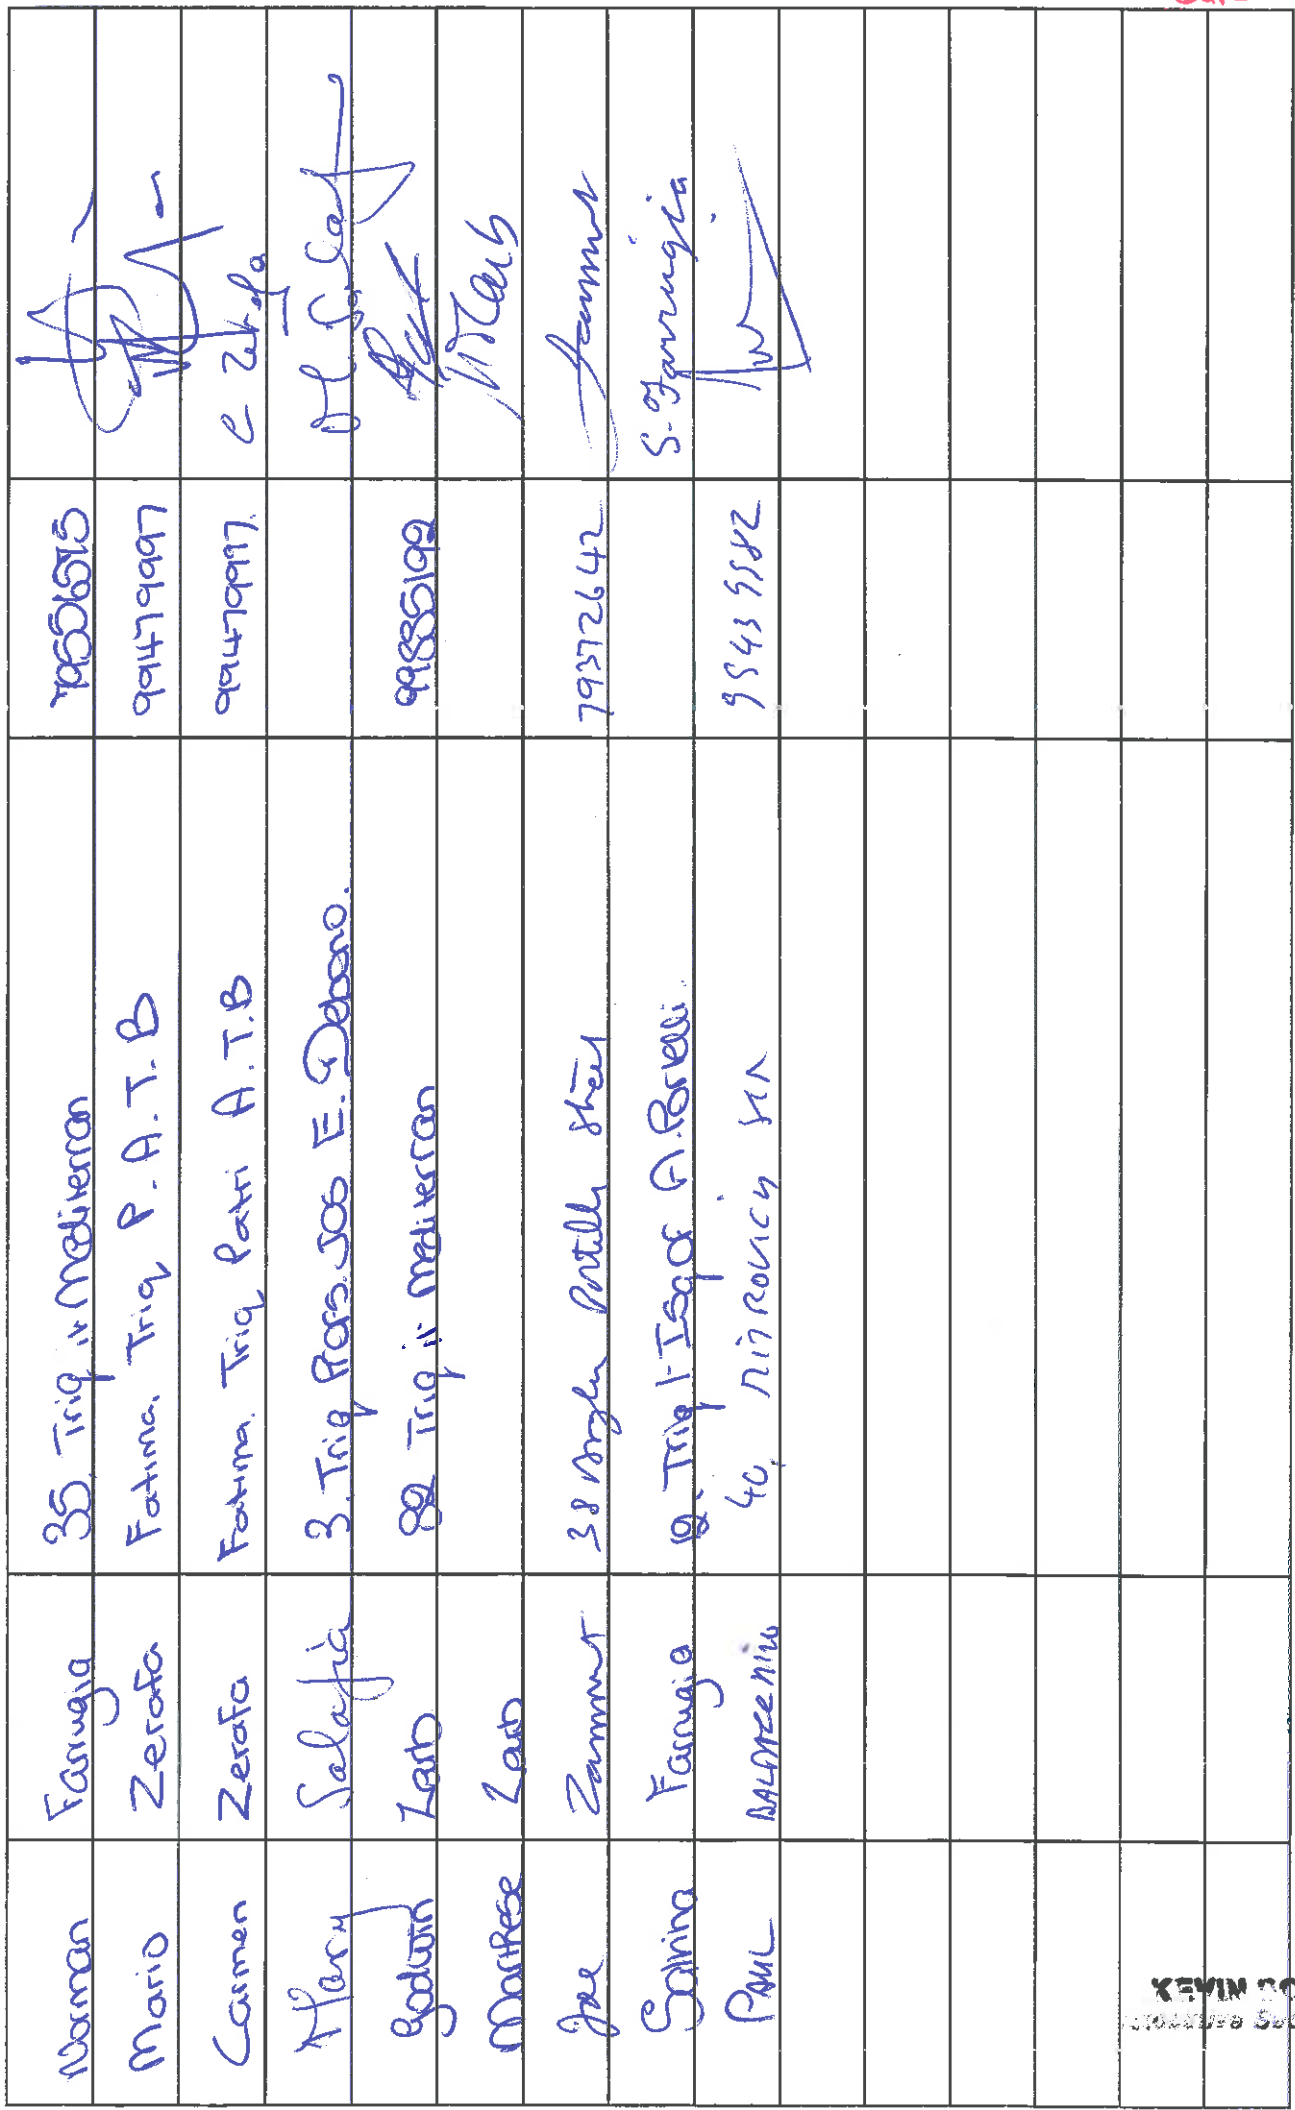 Norman Farrugia 35, Triq il-Mediterran 79556575
Mario Zerafa Fatima, Triq P. A. T. B 99479997
Carmen Zerafa Fatima. Triq Patri A.T.B 99479997 C Zerafa
Mary Salafia 3. Triq Profs. Jos E. Debono.
Godwin Zarb 82 Triq il-Mediterran 99885199
Marthese Zarb M Zarb
Joe Zammit 38 Portelli Street 79372642 Zammit
Salvina Farrugia Triq l-Isqof A. Portelli. S. Farrugia
PAUL 40, 99439582
KEVIN